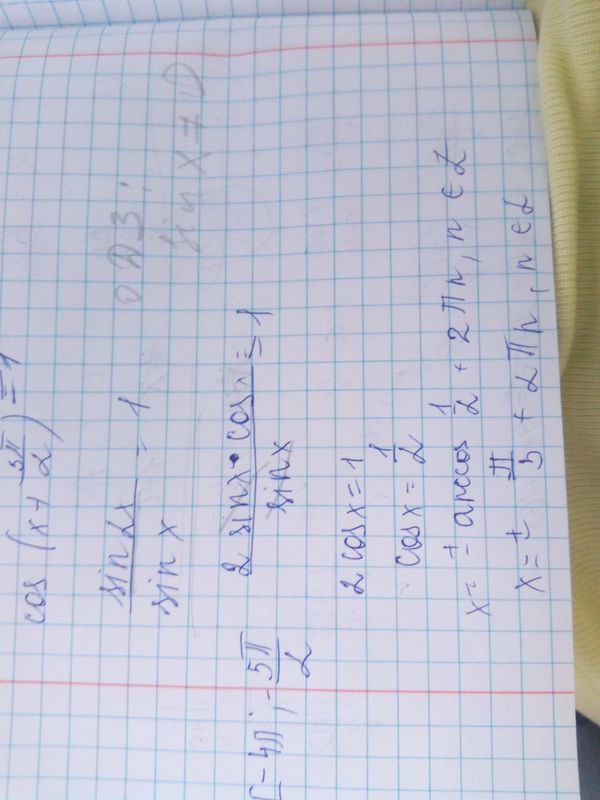 cos(x + 3π/2) = 1
sin2x/sinx = 1
ОДЗ:
sin x ≠ 0
2 sinx · cosx/sinx = 1
[-4π; -5π/2
2 cosx = 1
cosx = 1/2
x = ± arccos 1/2 + 2πn, n ∈ Z
x = ± π/3 + 2πn, n ∈ Z